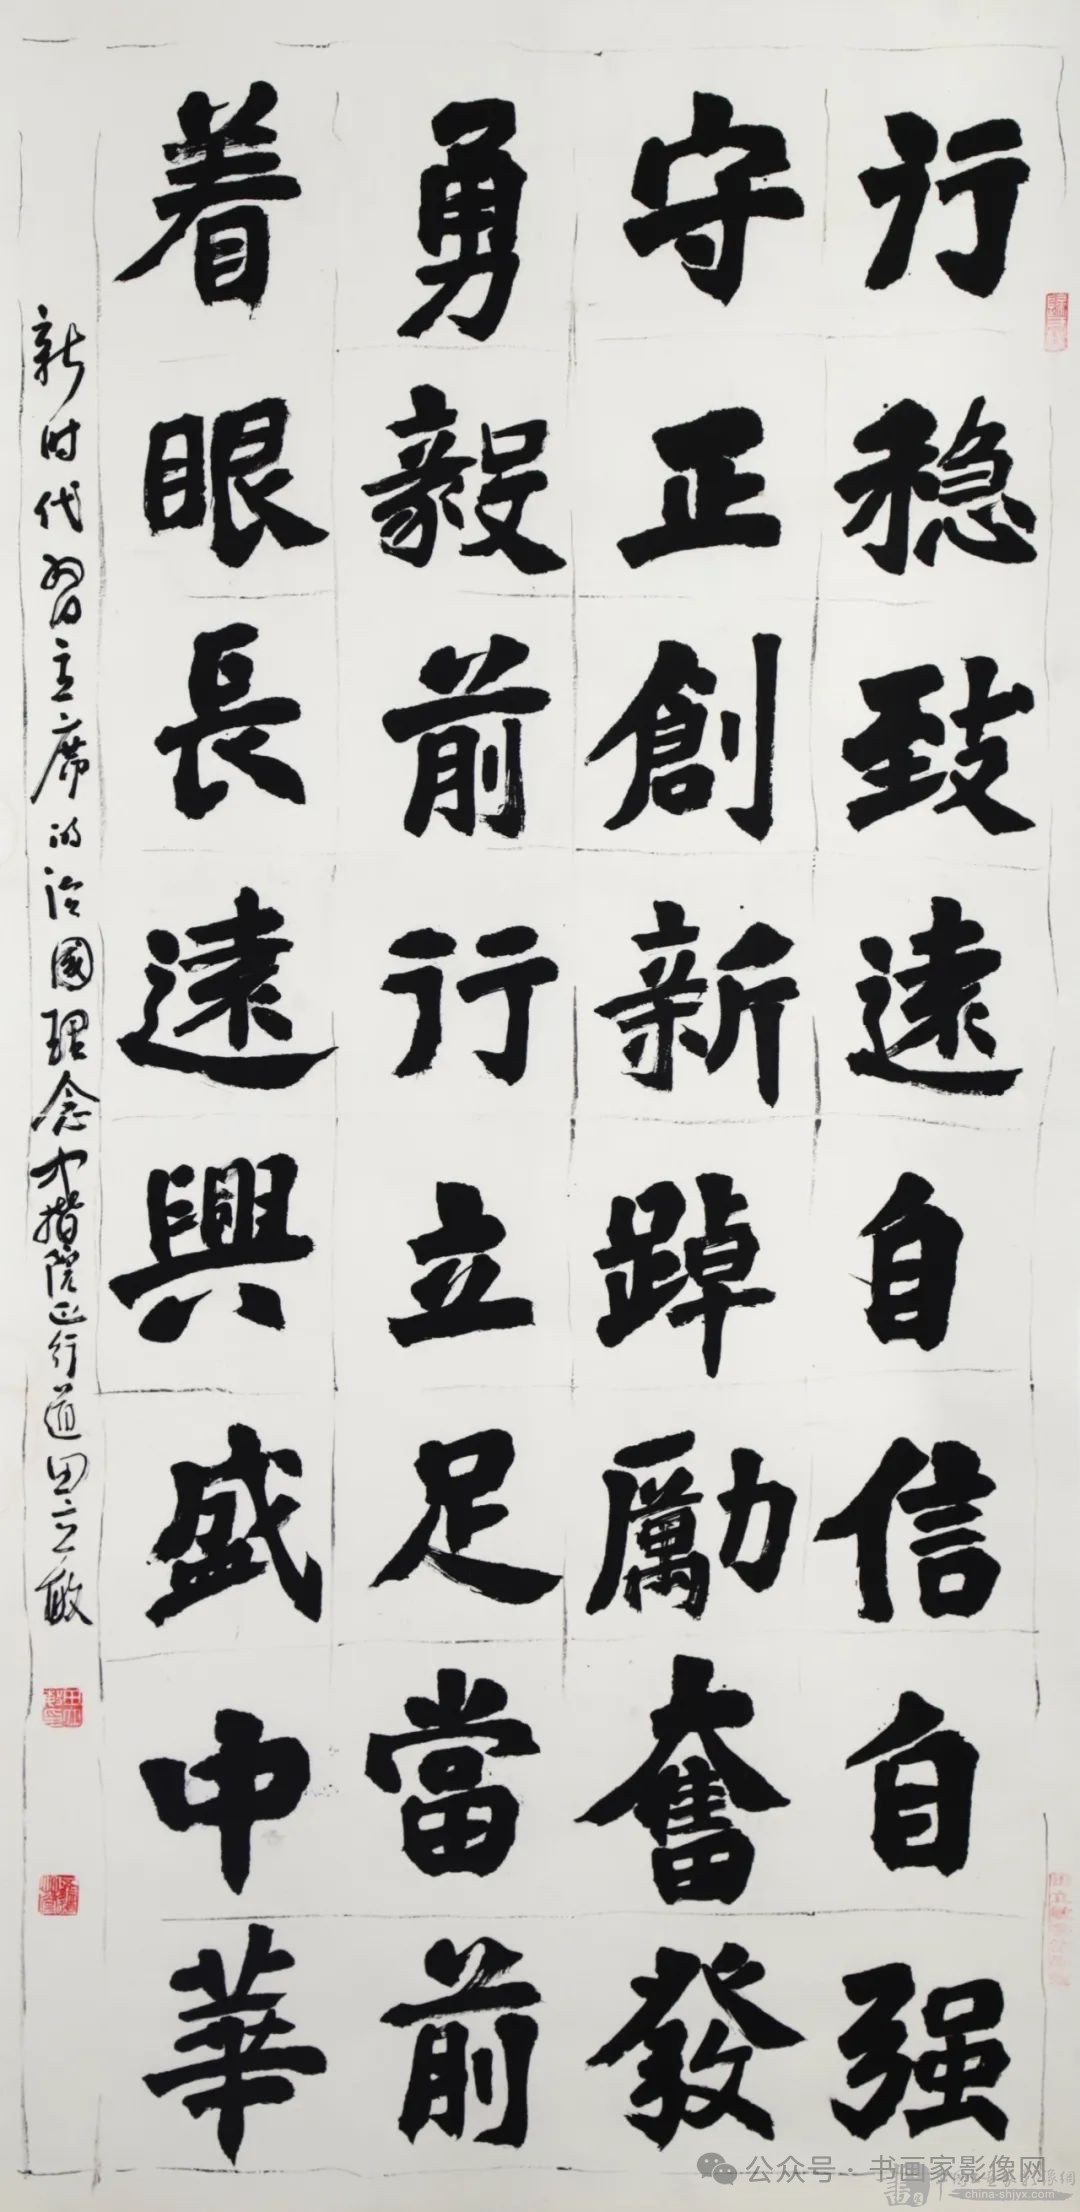 行稳致遠自信自强
守正創新踔厲奮發
勇毅前行立足當前
着眼長遠興盛中華
新时代習主席的治國理念中楷院正行道田立敏
公众号·书画家影像网
china-shjyx.com